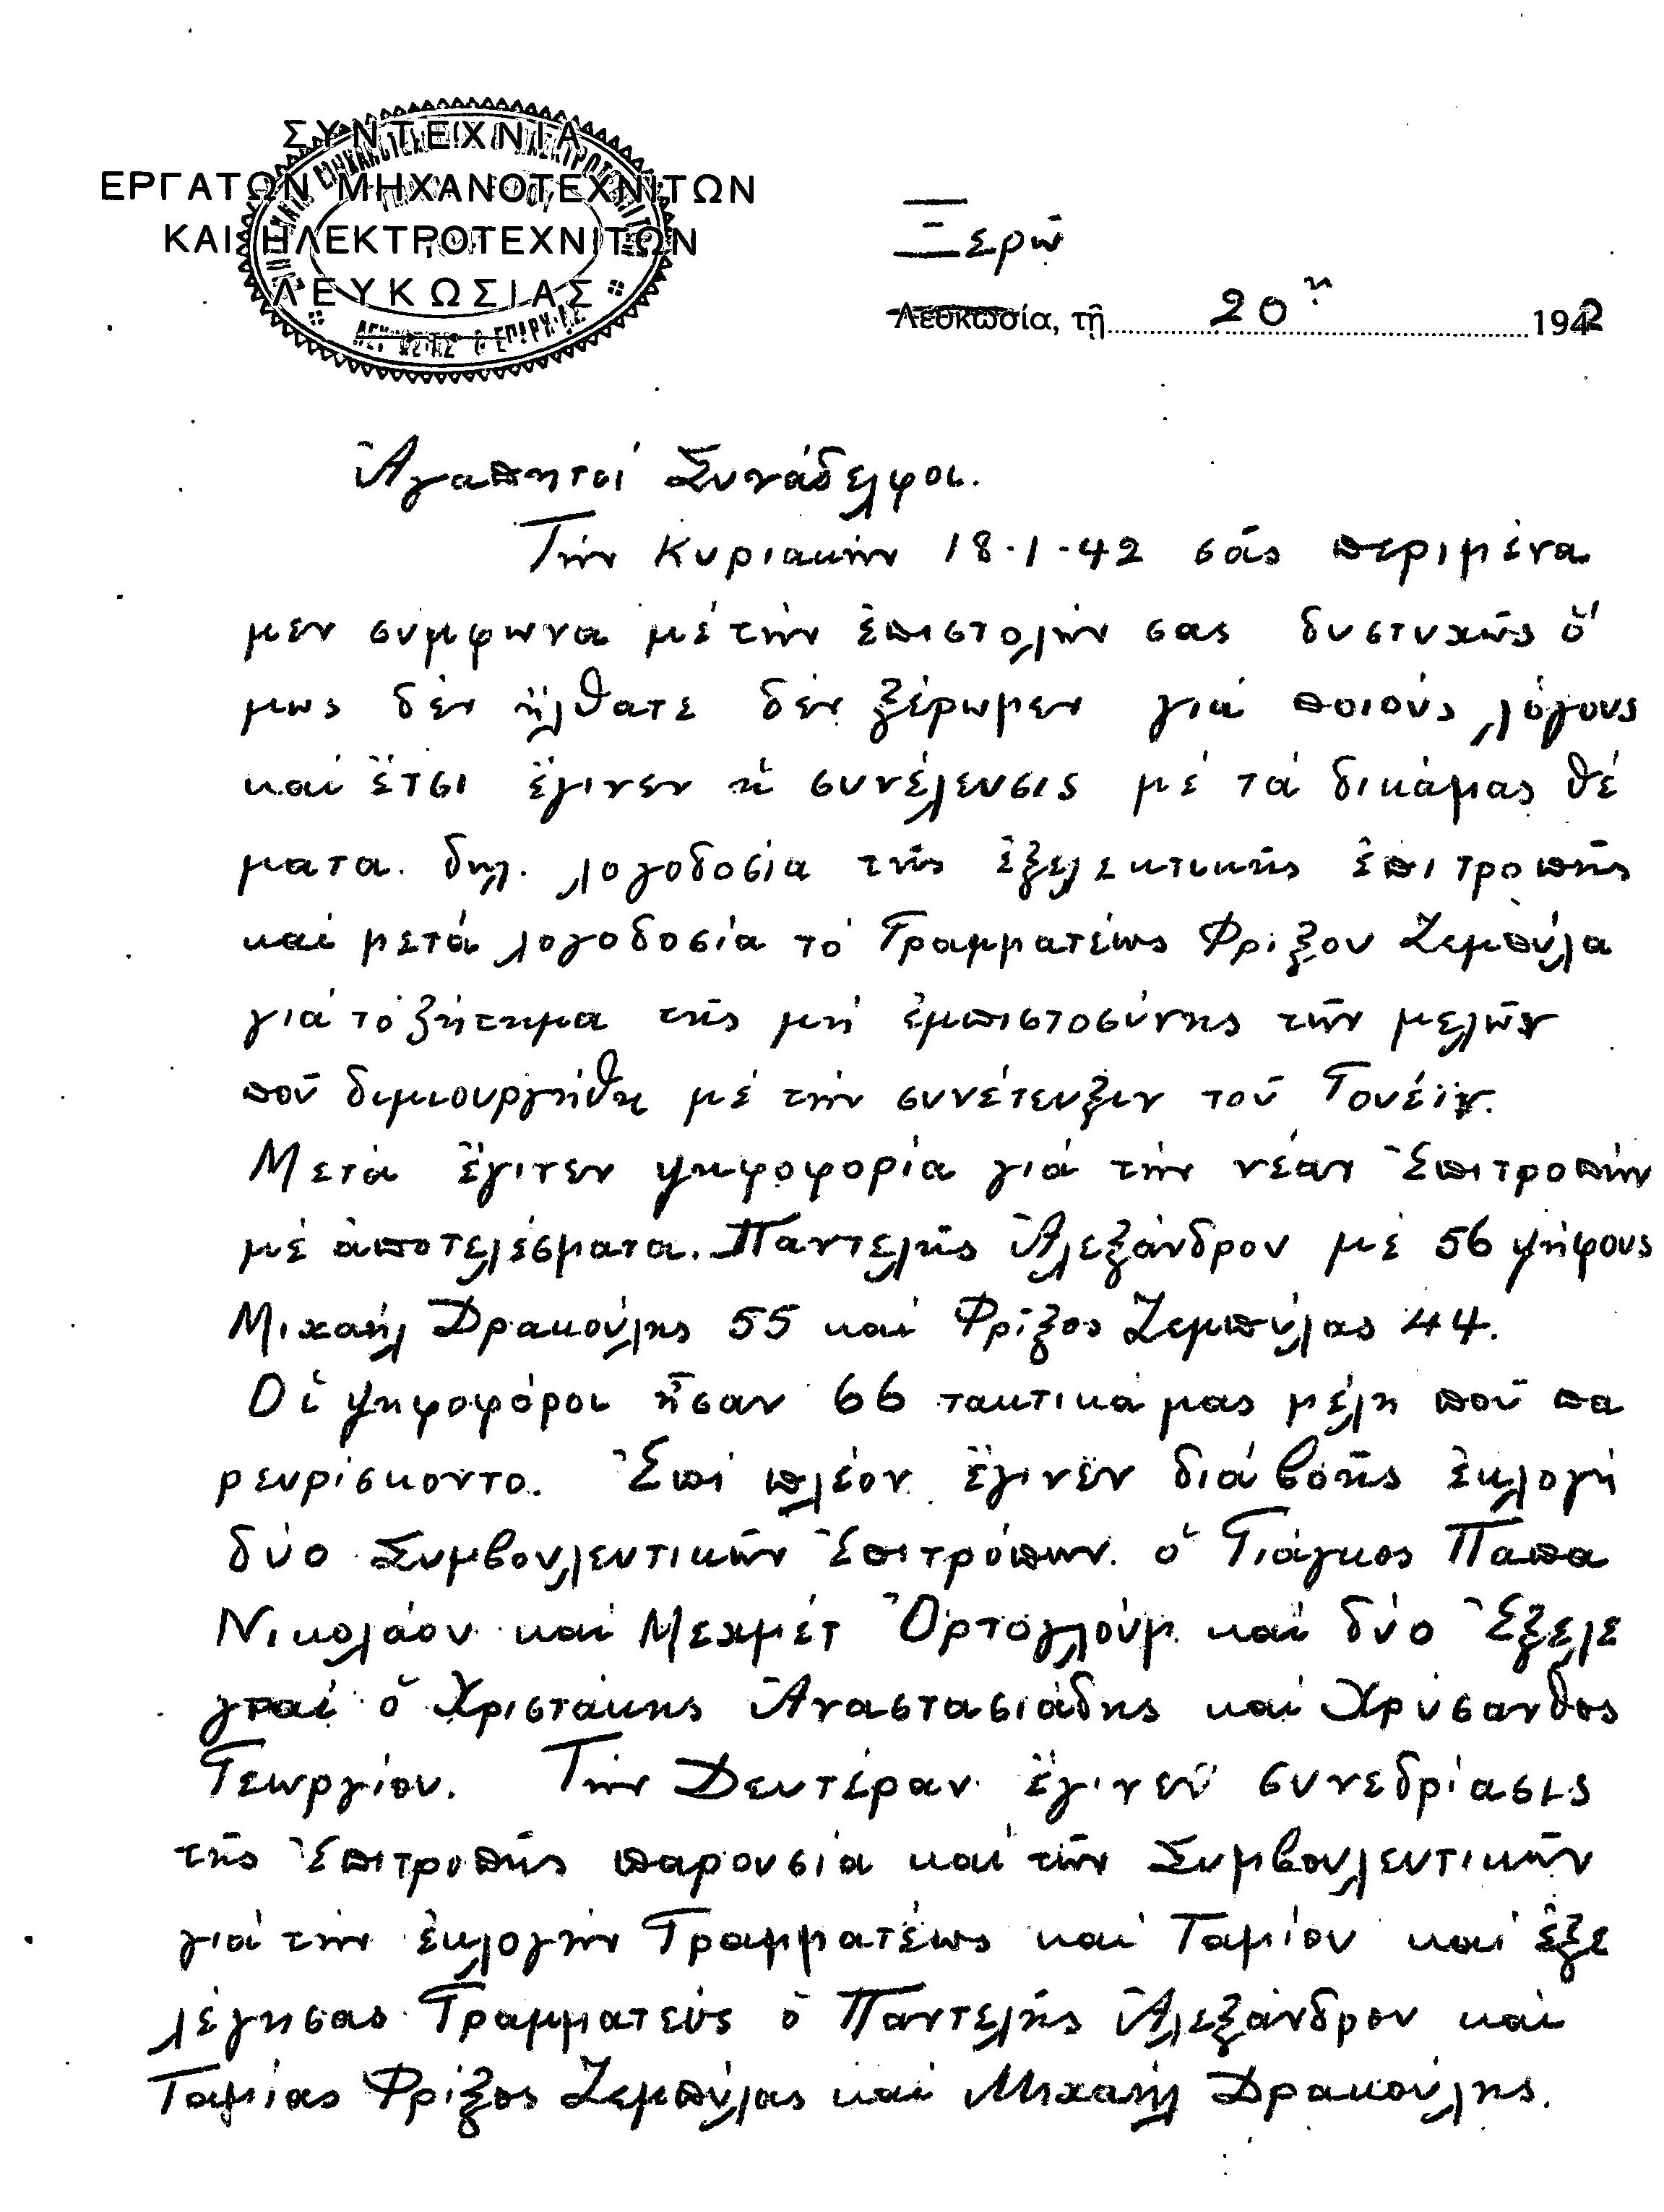 ΣΥΝΤΕΧΝΙΑ
ΕΡΓΑΤΩΝ ΜΗΧΑΝΟΤΕΧΝΙΤΩΝ
ΚΑΙ ΗΛΕΚΤΡΟΤΕΧΝΙΤΩΝ
ΛΕΥΚΩΣΙΑΣ
Ξερῶ
Λευκωσία, τῇ 20η 1942
Ἀγαπητοί Συνάδελφοι.
Τήν Κυριακήν 18-1-42 σᾶς περιμένα
μεν συμφωνα μέ τήν ἐπιστολήν σας δυστυχῶς ὅ
μως δέν ἤλθατε δέν ξέρωμεν γιά ποιούς λόγους
καί ἔτσι ἔγινεν ἡ συνέλευσις μέ τά δικάμας θέ
ματα. δηλ. λογοδοσία τῆς ἐξελεκτικῆς ἐπιτροπῆς
καί μετά λογοδοσία τό Γραμματέως Φρίξου Ζεμπύλα
γιά τό ζήτημα τῆς μή ἐμπιστοσύνης τῶν μελῶν
ποῦ διμιουργήθη μέ τήν συνέτευξιν τοῦ
Μετά ἔγινεν ψηφοφορία γιά τήν νέαν Ἐπιτροπήν
μέ ἀποτελέσματα. Παντελῆς Ἀλεξάνδρου μέ 56 ψήφους
Μιχαήλ Δρακούλης 55 καί Φρῖξος Ζεμπύλας 44.
Οἱ ψηφοφόροι ἦσαν 66 τακτικά μας μέλη ποῦ πα
ρευρίσκοντο. Ἐπί πλέον ἔγινεν διά βοῆς ἐκλογή
δύο Συμβουλευτικῶν Ἐπιτρόπων. ὁ Γιάγκος Παπα
Νικολάου καί Μεχμέτ Ὀρτογλούμ καί δύο Ἐξελε
γταί ὁ Χριστάκης Ἀναστασιάδης καί Χρύσανθος
Γεωργίου. Τήν Δευτέραν ἔγινεν συνεδρίασις
τῆς Ἐπιτροπῆς παρουσία καί τῶν Συμβουλευτικῶν
γιά τήν ἐκλογήν Γραμματέως καί Ταμίου καί ἐξε
λέγησαο Γραμματεύς ὁ Παντελῆς Ἀλεξάνδρου καί
Ταμίας Φρίξος Ζεμπύλας καί Μιχαήλ Δρακούλης.